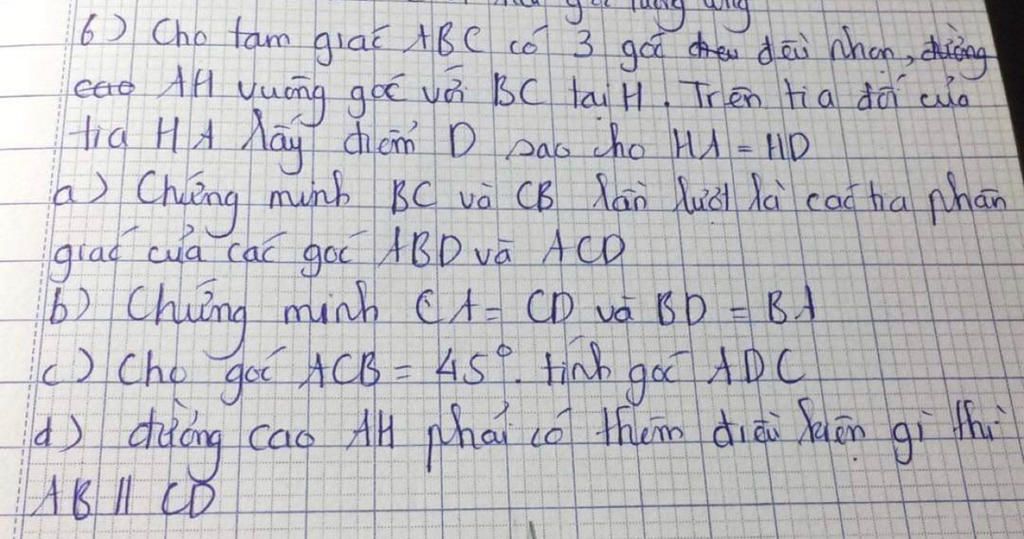 6) Cho tam giác ABC có 3 góc đều nhọn, đường
cao AH vuông góc với BC tại H. Trên tia đối của
tia HA lấy điểm D sao cho HA = HD
a) Chứng minh BC và CB lần lượt là các tia phân
giác của các góc ABD và ACD
b) Chứng minh CA = CD và BD = BA
c) Cho góc ACB = 45°. tính góc ADC
d) đường cao AH phải có thêm điều kiện gì thì
AB // CD